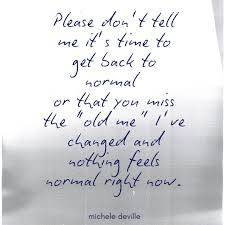 Please don't tell
me it's time to
get back to
normal
or that you miss
the "old me" I've
changed and
nothing feels
normal right now.
michele deville